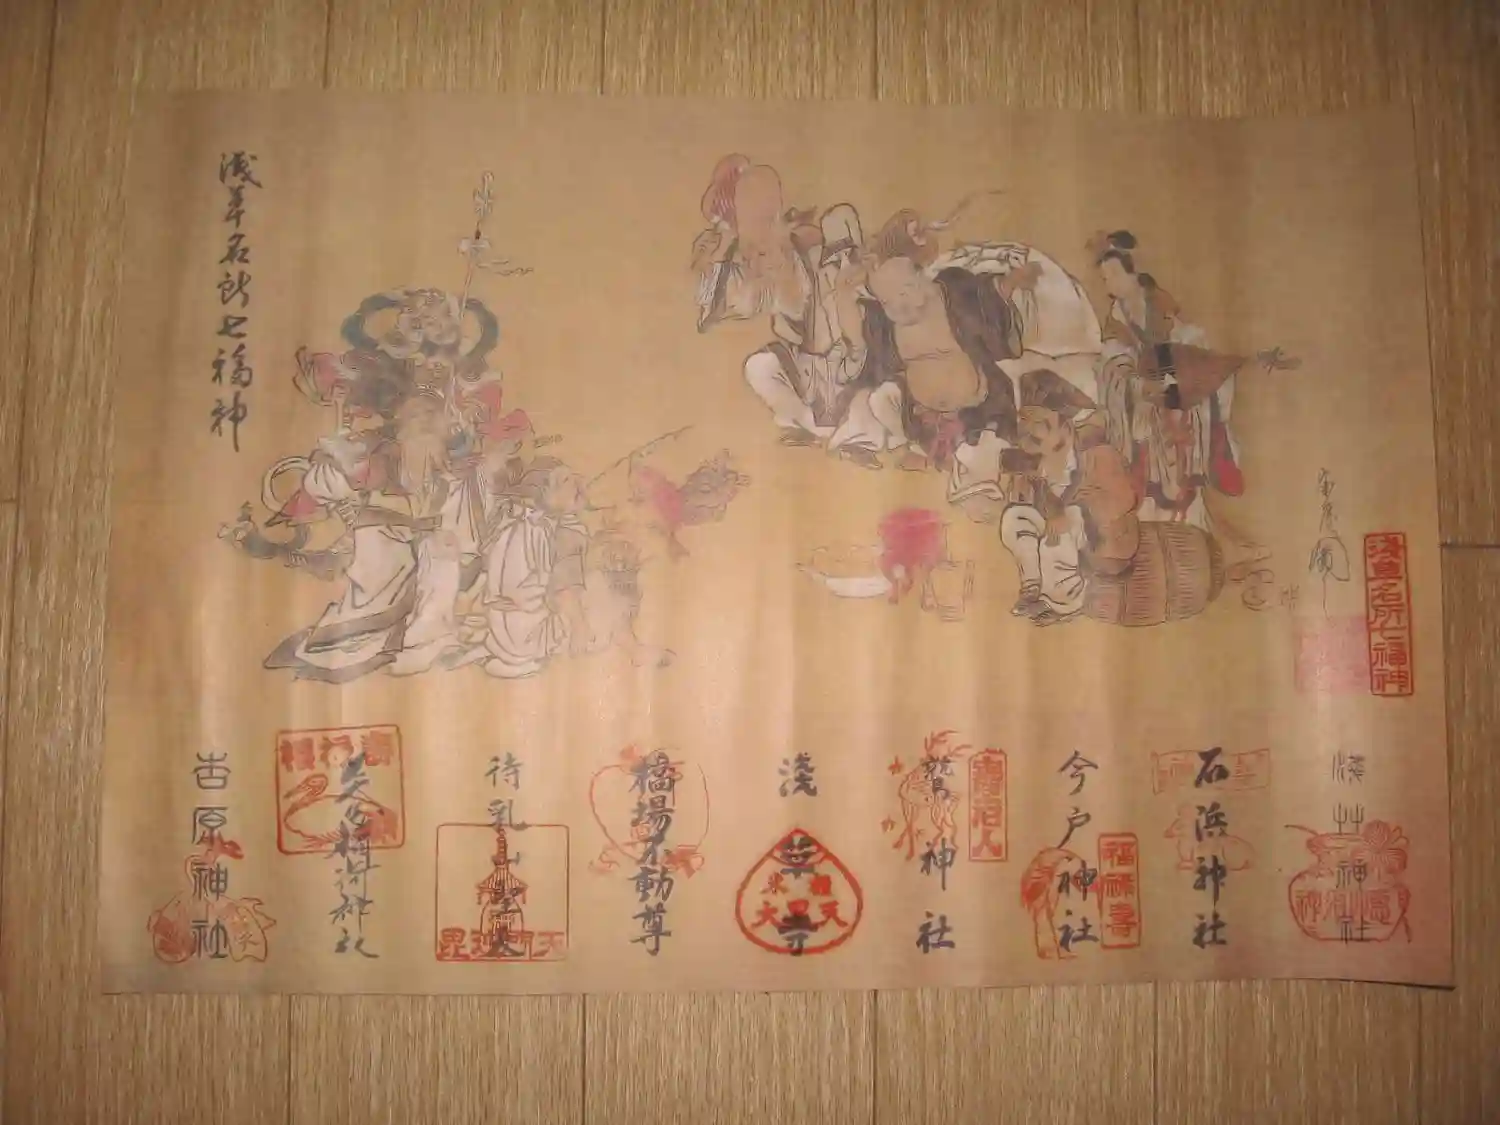 浅草名所七福神
浅草名所七福神
浅草神社
石浜神社
今戸神社
福禄寿
鷲神社
寿老人
浅草寺
米櫃
大黒天
橋場不動尊
待乳山聖天
毘沙門天
矢先稲荷神社
福禄寿
吉原神社